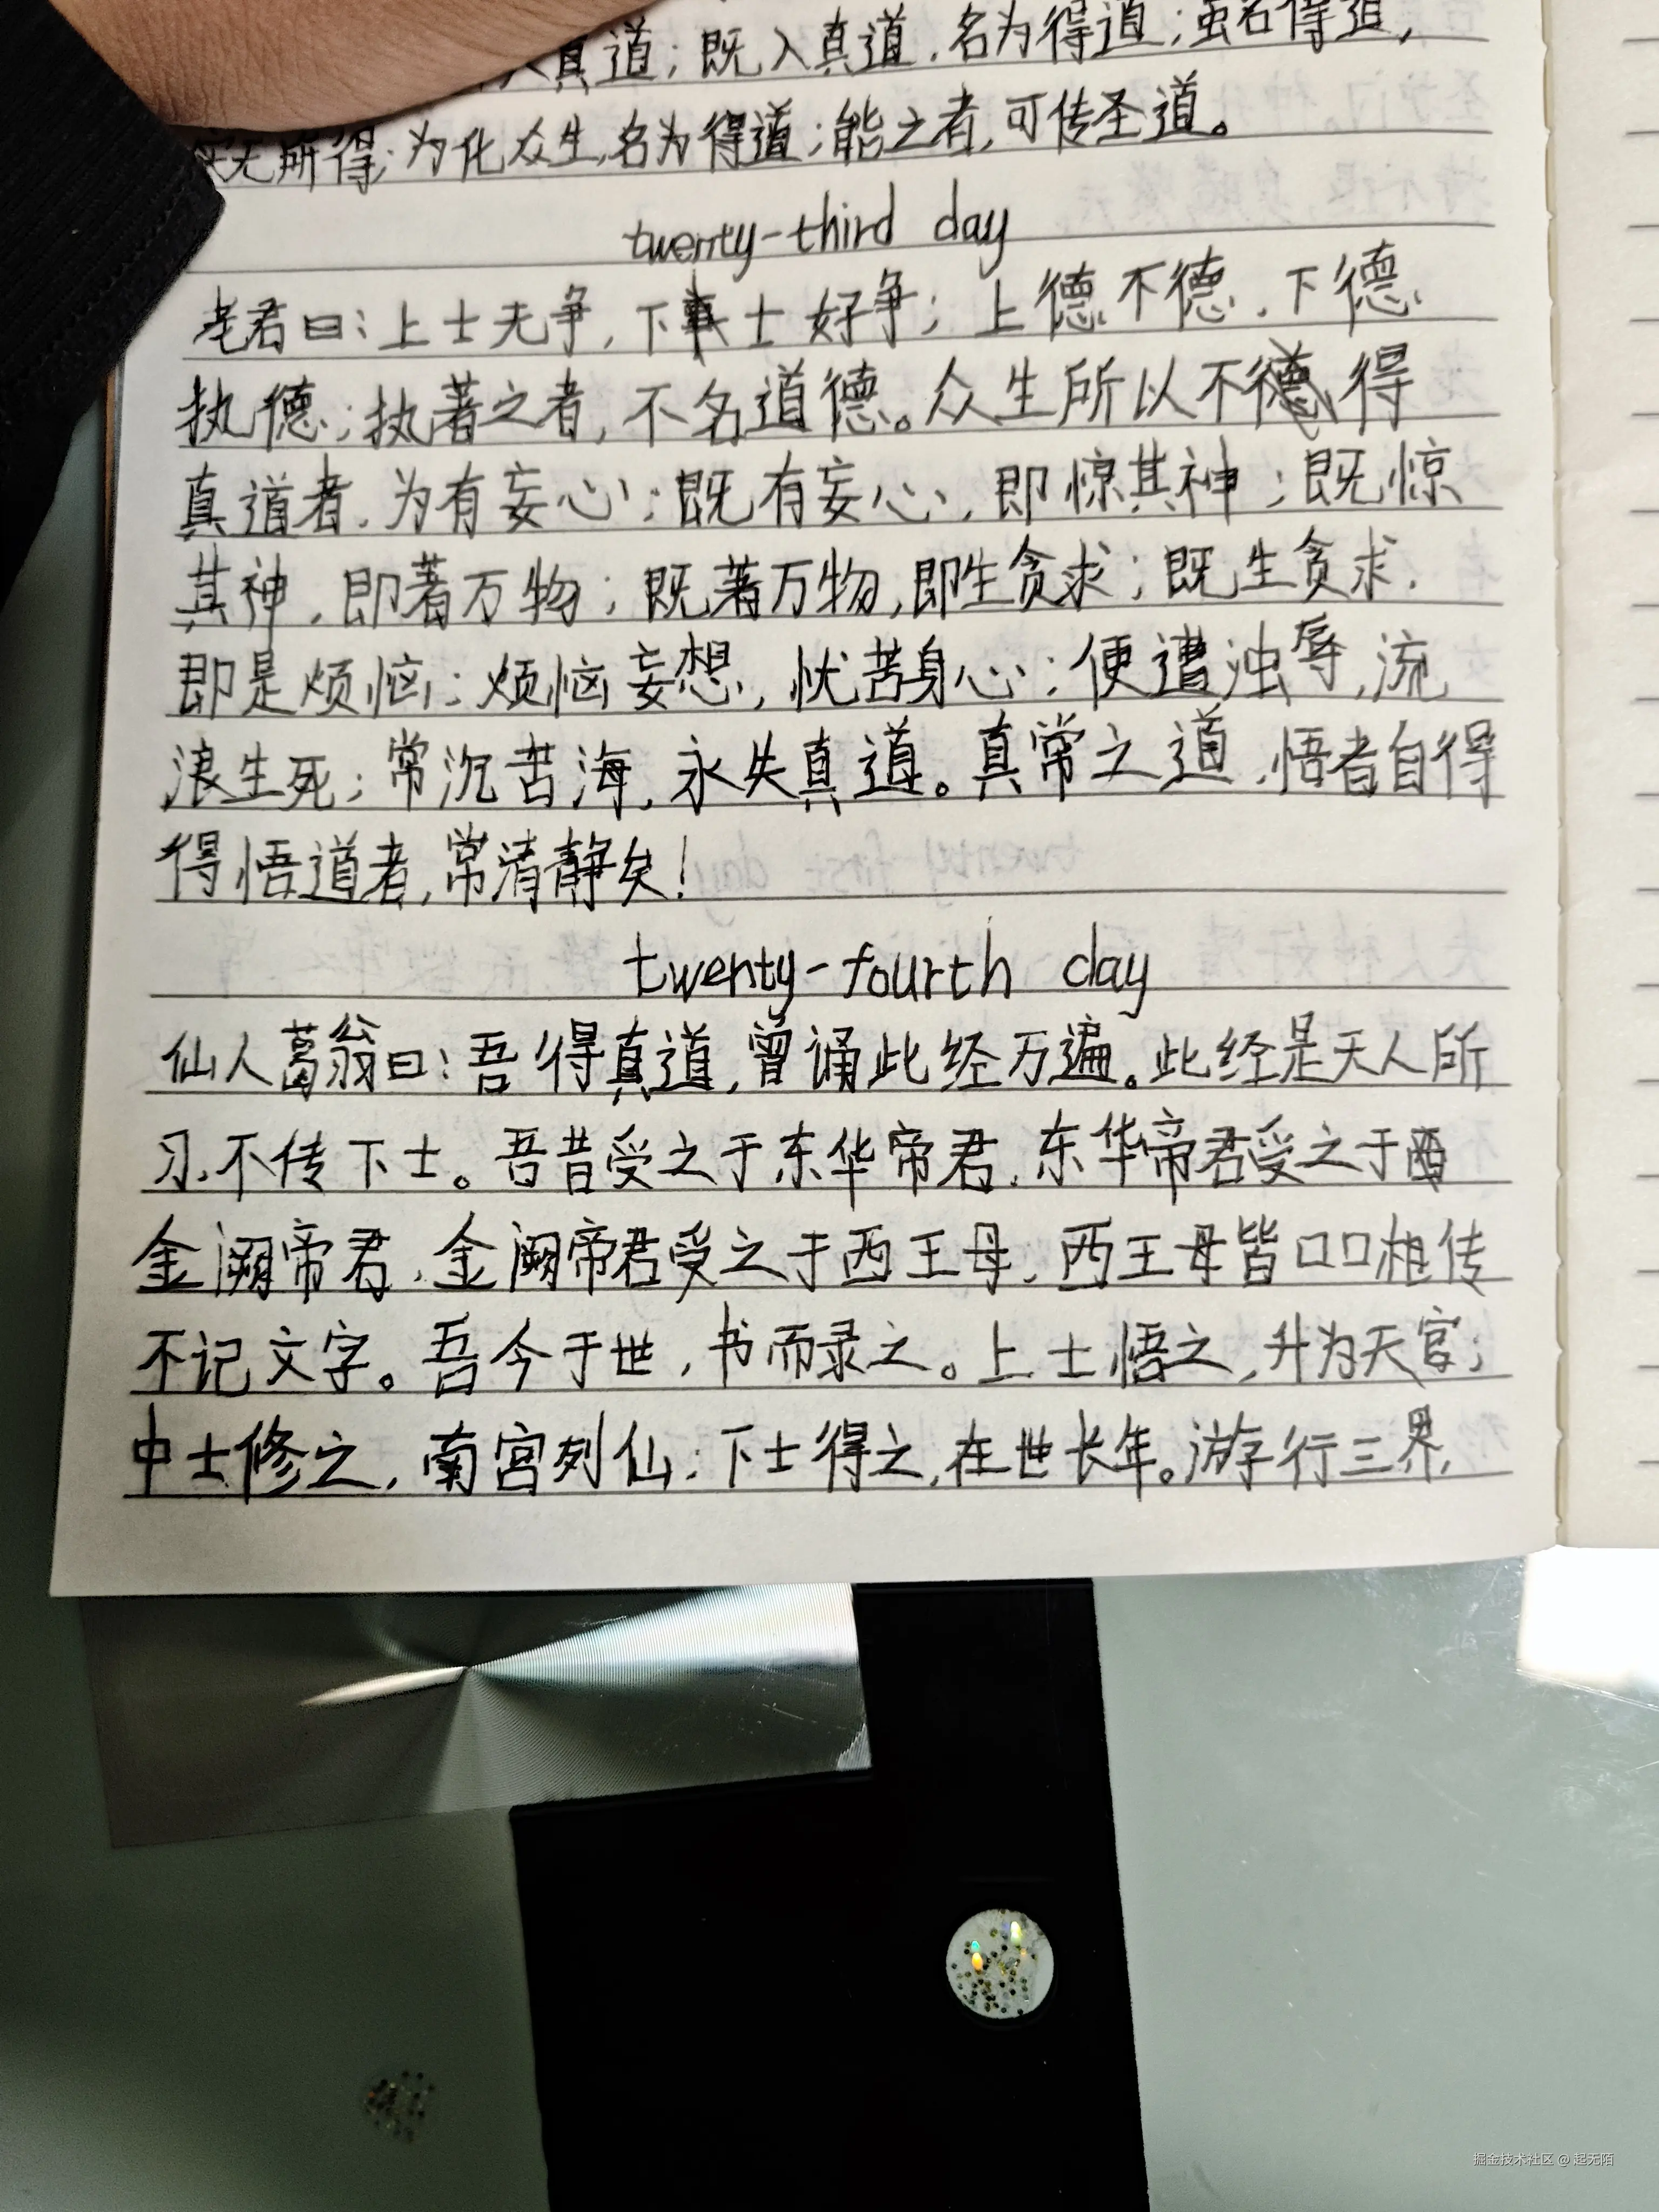 真道；既入真道，名为得道；虽名得道，
无所得；为化众生，名为得道；能之者，可传圣道。
twenty-third day
老君曰：上士无争，下士好争；上德不德，下德
执德；执著之者，不名道德。众生所以不得
真道者，为有妄心；既有妄心，即惊其神；既惊
其神，即著万物；既著万物，即生贪求；既生贪求，
即是烦恼；烦恼妄想，忧苦身心；便遭浊辱，流
浪生死；常沉苦海，永失真道。真常之道，悟者自得
得悟道者，常清静矣！
twenty-fourth day
仙人葛翁曰：吾得真道，曾诵此经万遍。此经是天人所
习，不传下士。吾昔受之于东华帝君，东华帝君受之于
金阙帝君，金阙帝君受之于西王母，西王母皆口口相传
不记文字。吾今于世，书而录之。上士悟之，升为天官；
中士修之，南宫列仙；下士得之，在世长年。游行三界，
掘金技术社区 @ 起无陌